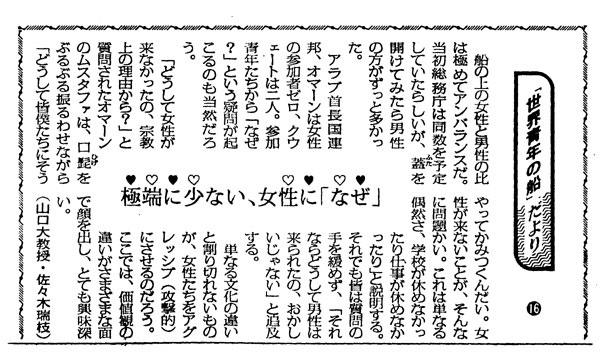 「世界青年の船」だより
⓰
極端に少ない、女性に「なぜ」
船の上の女性と男性の比
は極めてアンバランスだ。
当初総務庁は同数を予定
していたらしいが、蓋を
ふた
開けてみたら男性
の方がずっと多かっ
た。
アラブ首長国連
邦、オマーンは女性
の参加者ゼロ、クウ
ェートは二人。参加
青年たちから「なぜ
?」という疑問が起
こるのも当然だろ
う。
「どうして女性が
来なかったの、宗教
上の理由から?」と
質問されたオマーン
のムスタファは、口髭を
ひげ
ぶるぶる振るわせながら
「どうして皆僕たちにそう
やってかみつくんだい。女
性が来ないことが、そんな
に問題かい。これは単なる
偶然さ、学校が休めなかっ
たり仕事が休めなか
ったり」と説明する。
それでも皆は質問の
手を緩めず、「それ
ならどうして男性は
来られたの、おかし
いじゃない」と追及
する。
単なる文化の違い
と割り切れないもの
が、女性たちをアグ
レッシブ(攻撃的)
にさせるのだろう。
ここでは、価値観の
違いがさまざまな面
で顔を出し、とても興味深
い。
(山口大教授・佐々木瑞枝)